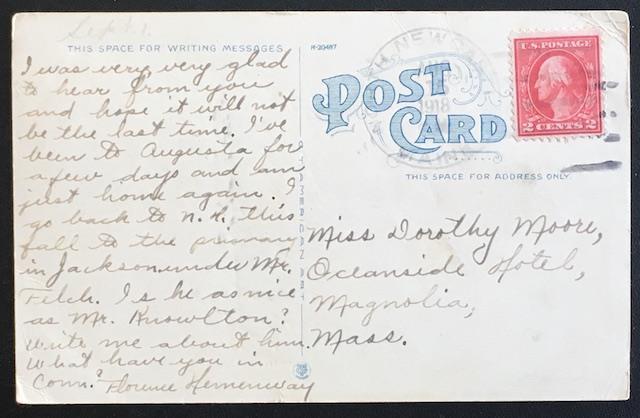 Sept. 1.
THIS SPACE FOR WRITING MESSAGES
H-20487
I was very very glad
to hear from you
and hope it will not
be the last time. I've
been to Augusta for
a few days and am
just home again. I
go back to N.H. this
fall to the primary
in Jackson under Mr.
Felch. Is he as nice
as Mr. Knowlton?
Write me about him.
What have you in
Conn.? Florence Hemenway
POST CARD
1918
MAINE
U.S. POSTAGE
2 CENTS 2
THIS SPACE FOR ADDRESS ONLY.
Miss Dorothy Moore,
Oceanside Hotel,
Magnolia,
Mass.